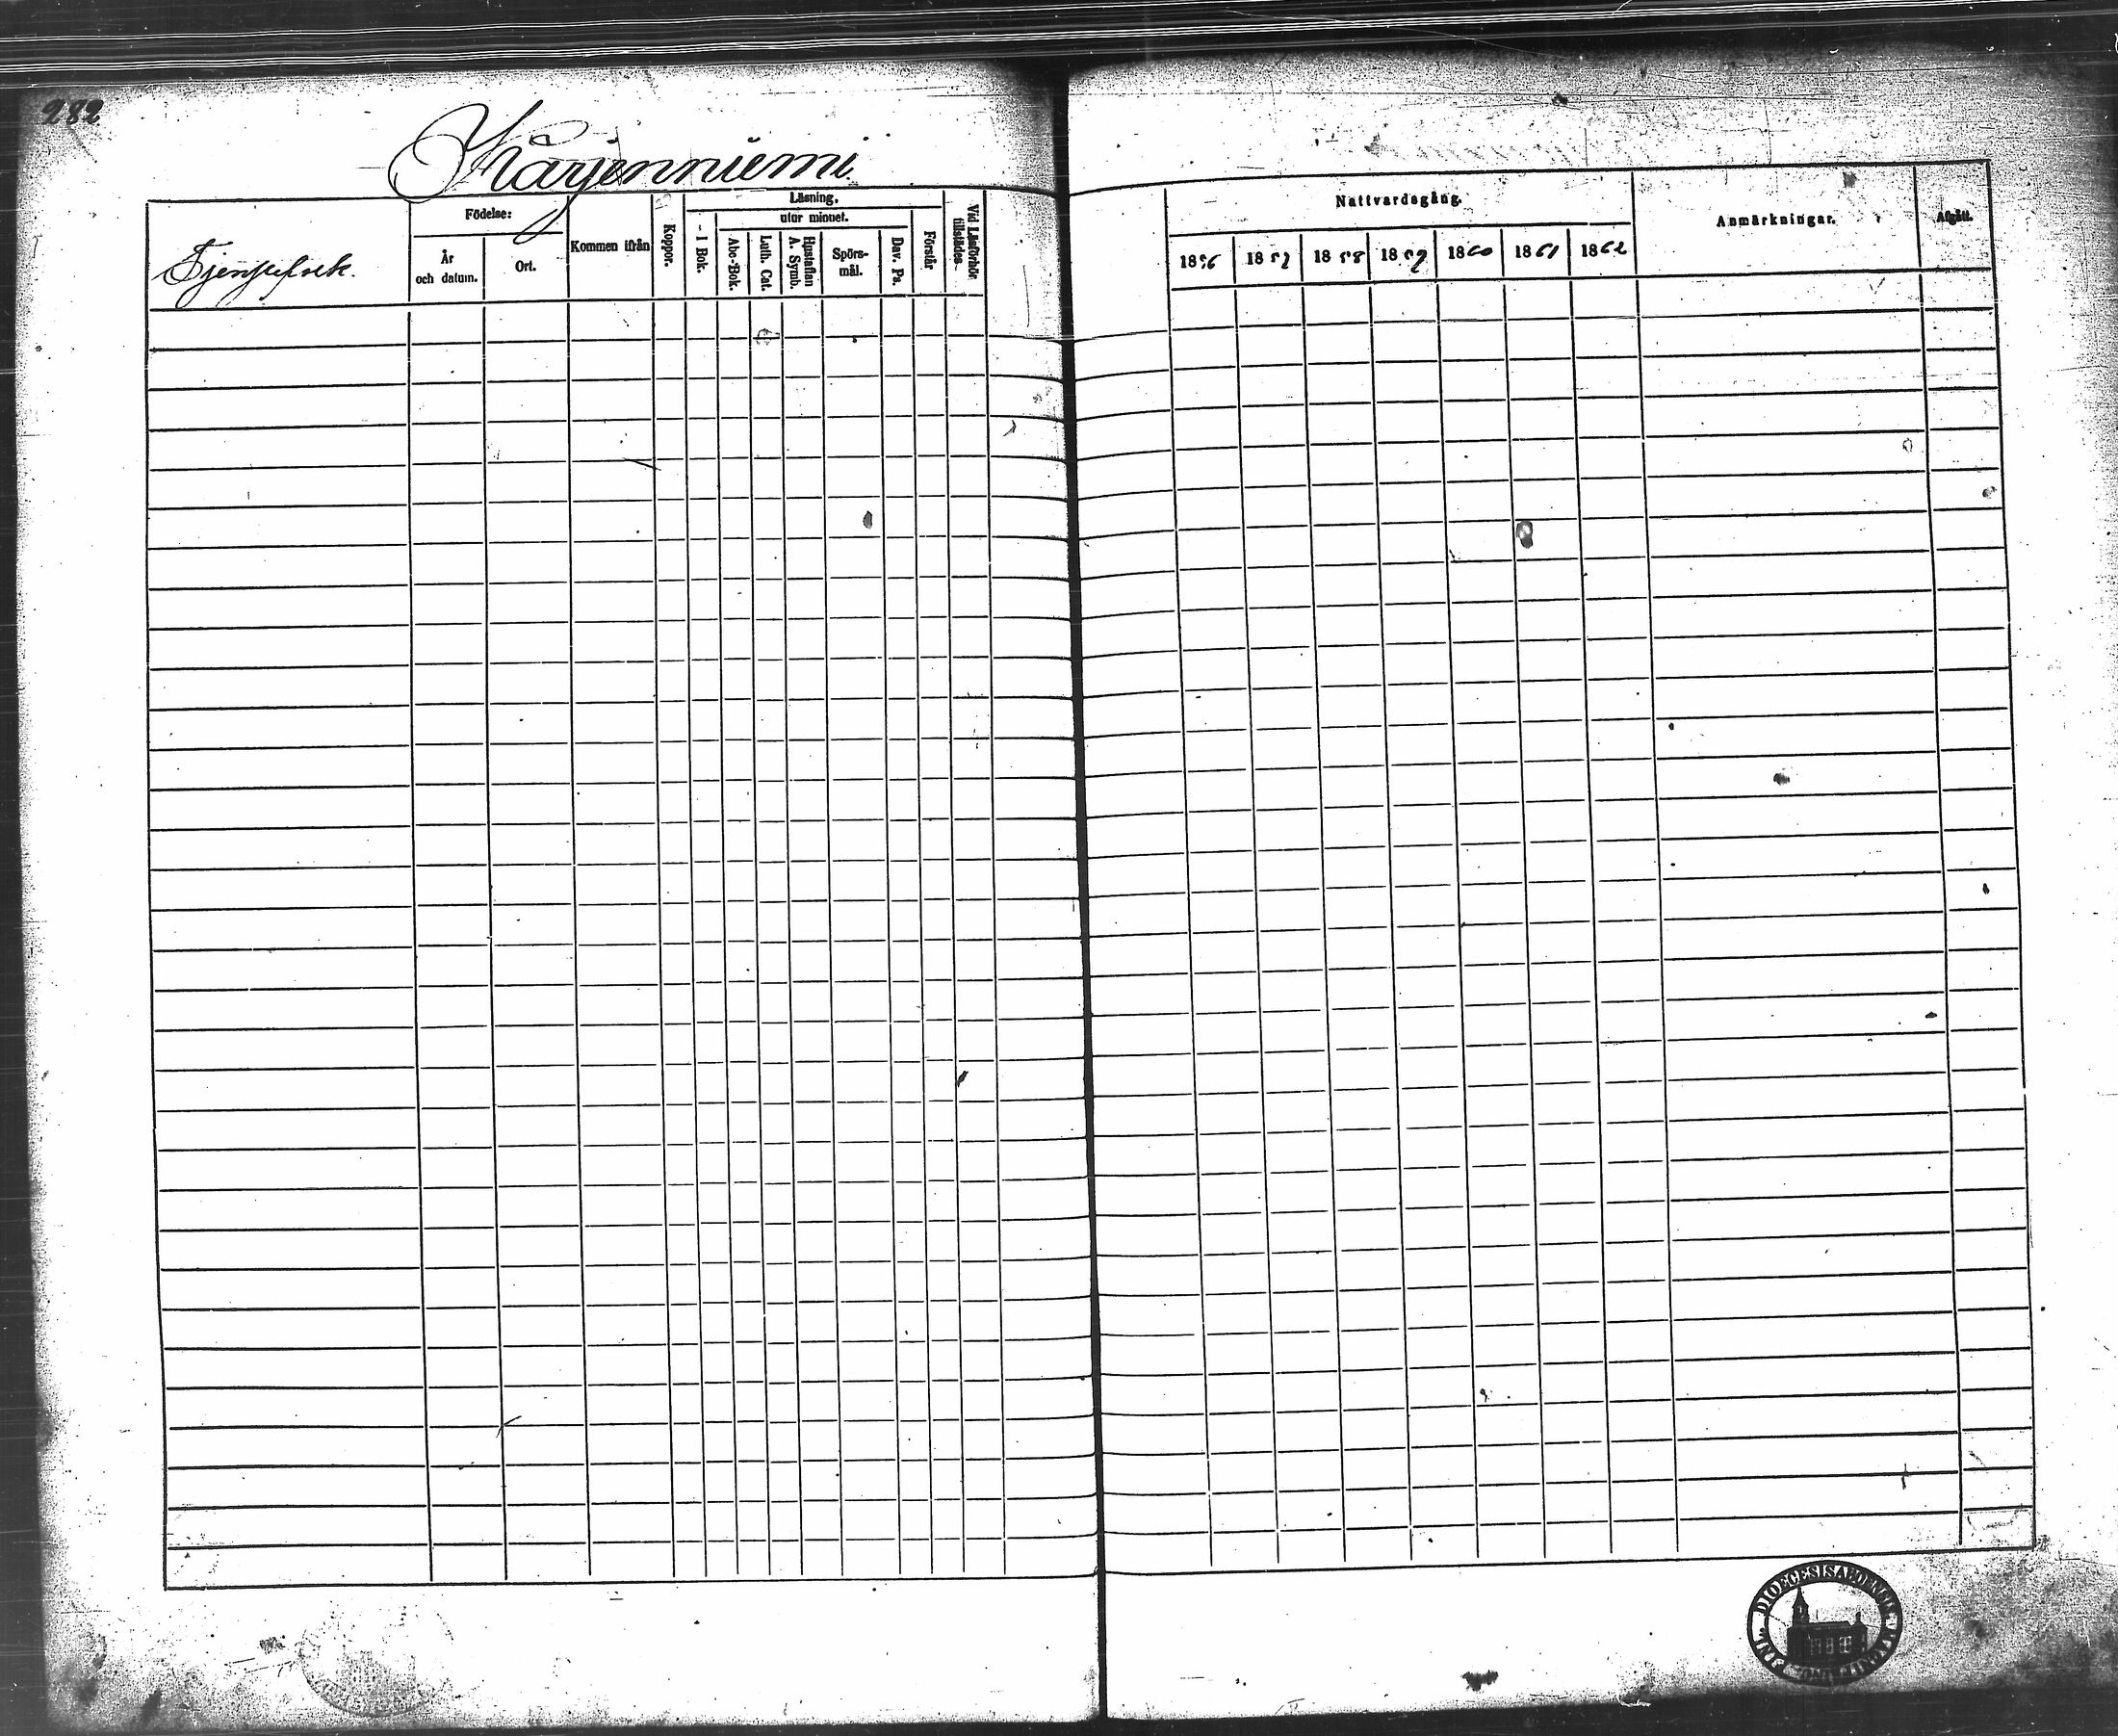 282
Kärjenniemi
Tjenstefolk.
Födelse:
År
och datum.
Ort.
Kommen ifrån
Koppor.
Läsning,
utur minnet.
I Bok.
Abc-Bok.
Luth. Cat.
Hustaflan
A. Symb.
Spörs-
mål.
Dav. Ps.
Förstår
Vid Läsförhör
tillstädes
Nattvardsgång.
1856 1857 1858 1859 1860 1861 1862
Anmärkningar.
Afgått.
DIOECESIS ABOENSIS